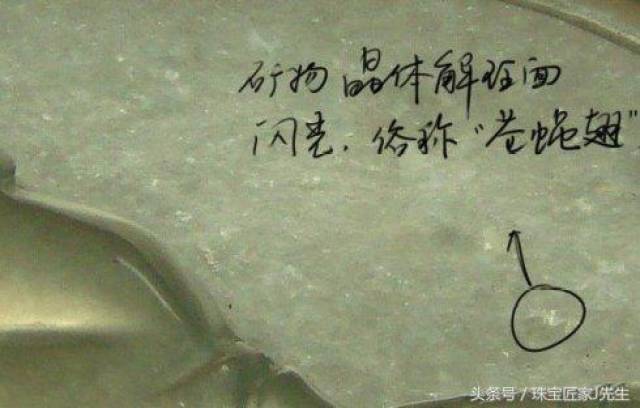 矿物晶体解理面
闪光.俗称"苍蝇翅"
头条号/珠宝匠家J先生